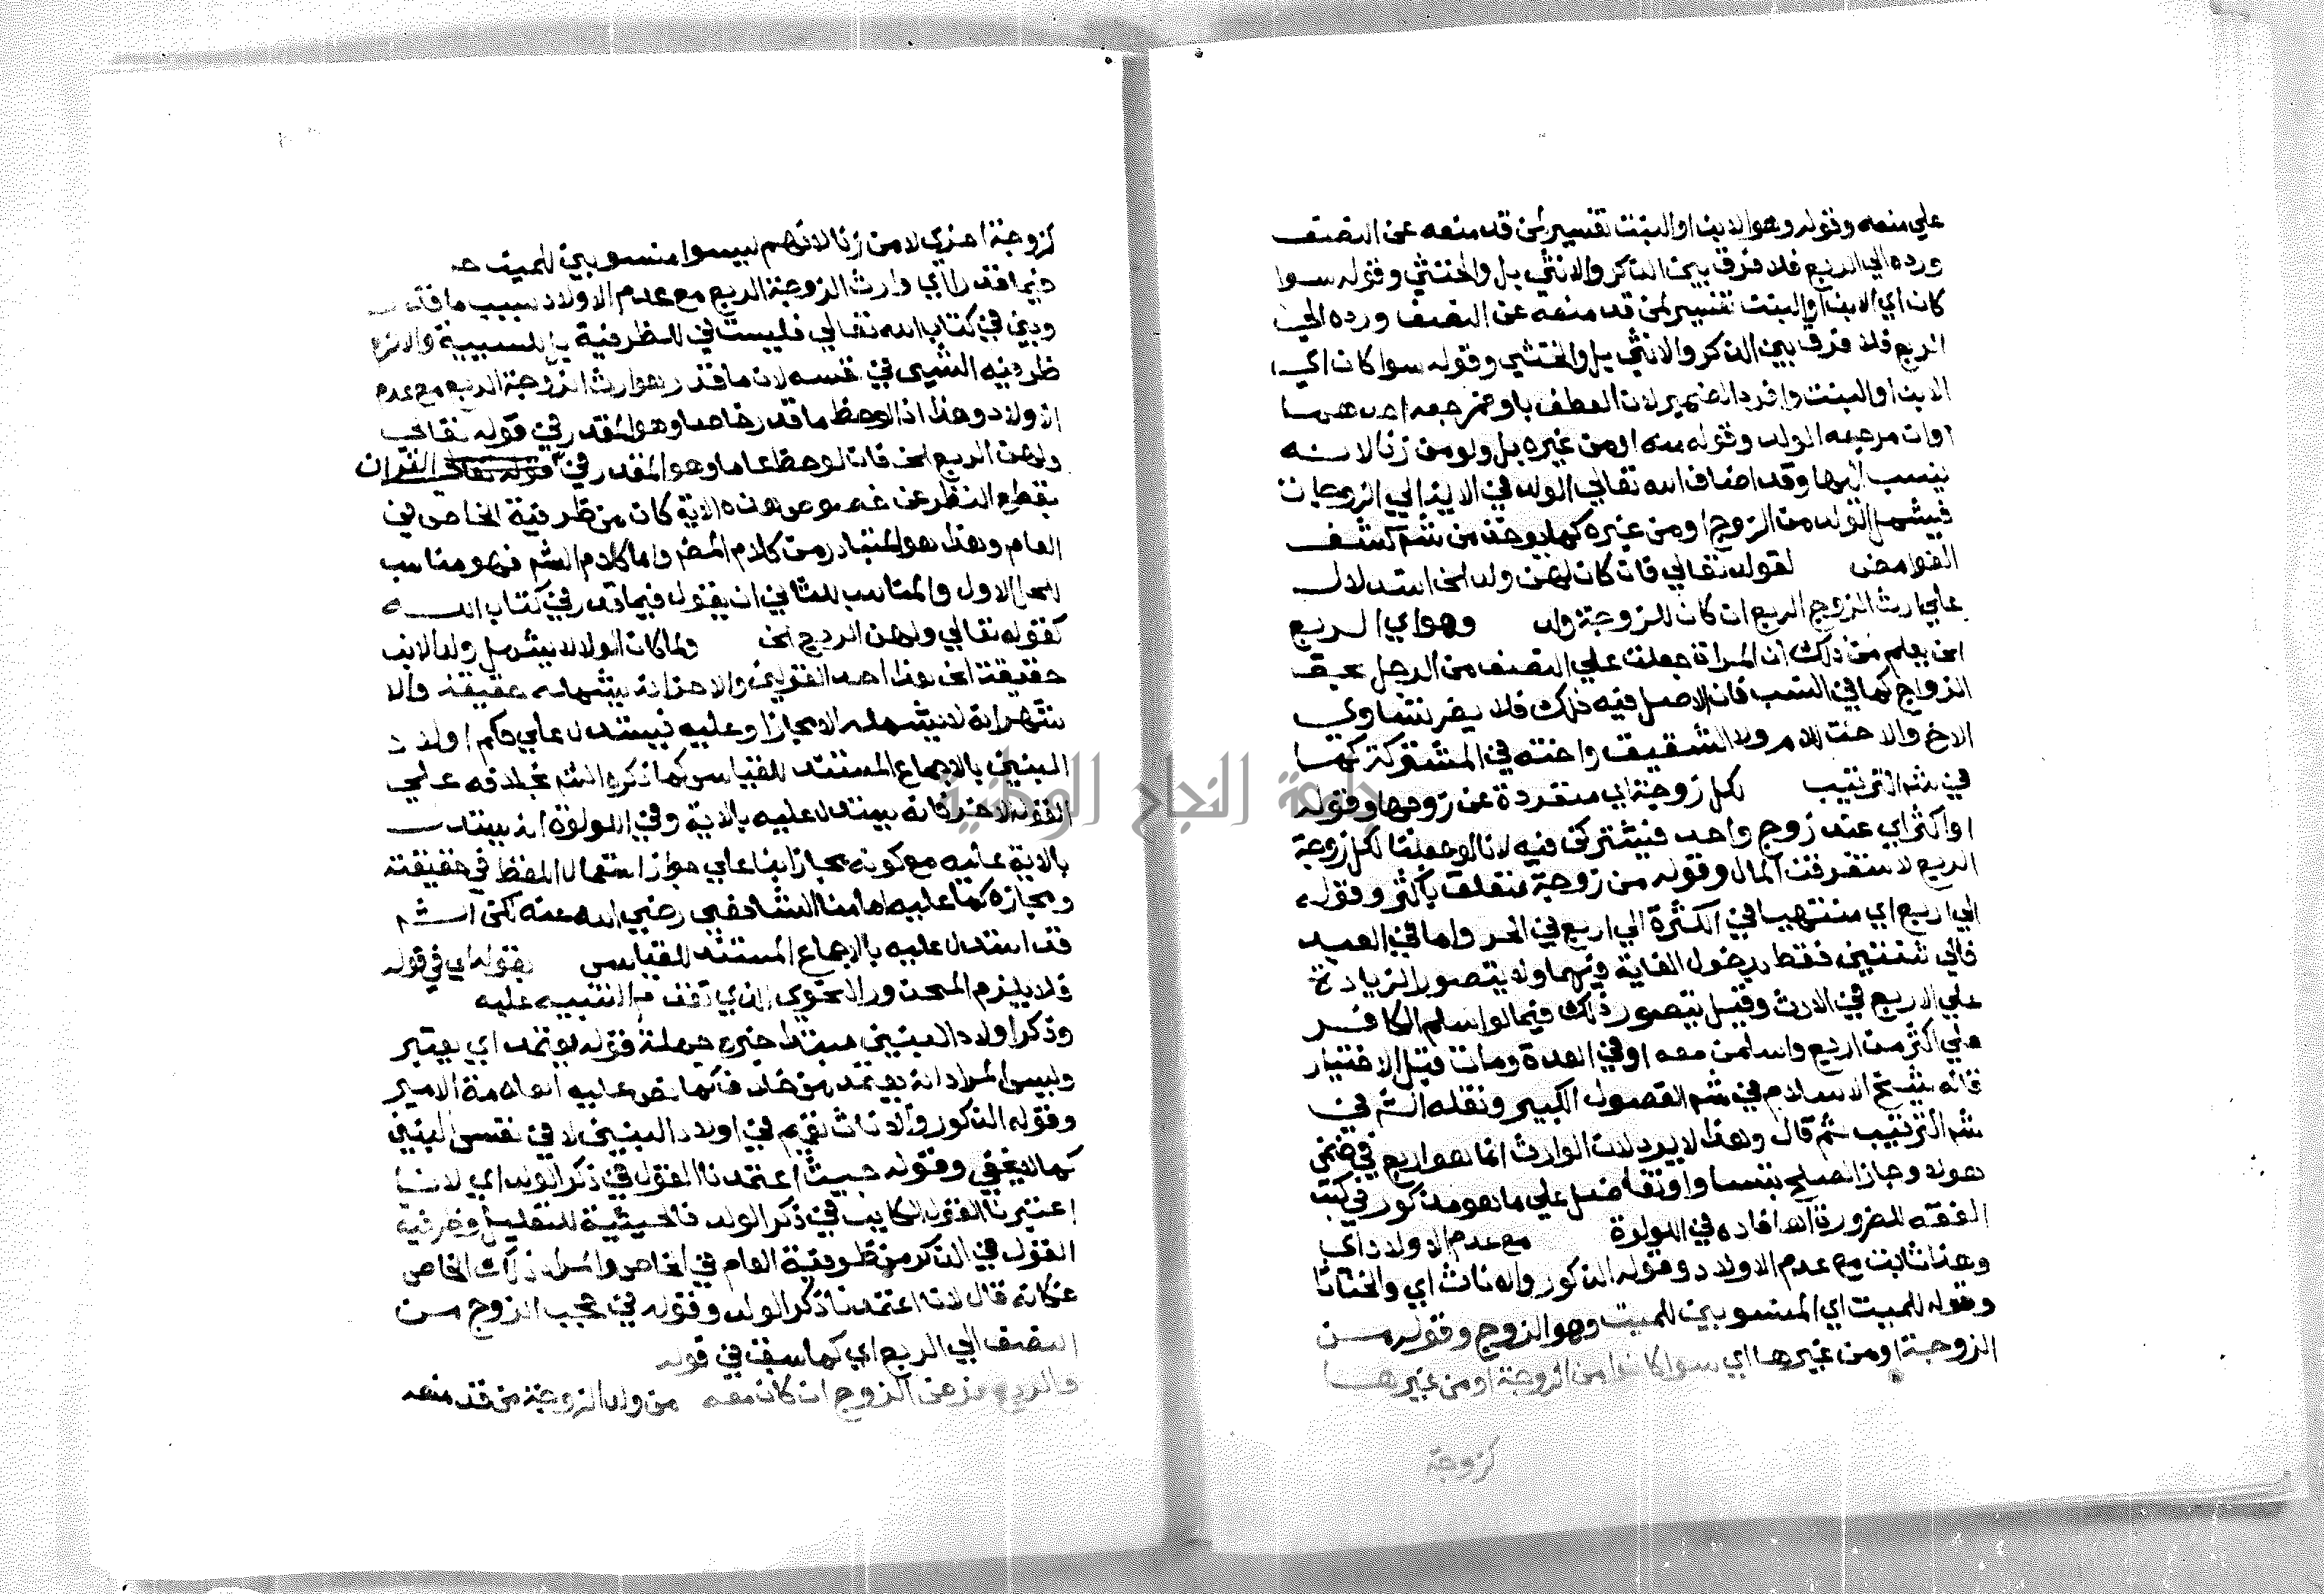 علي منعه وقوله وهو الابن او البنت تفسير لمن قد منعه عن النصف
ورده الي الربع فلا فرق بين الذكر والانثي بل والخنثي وقوله سوا
كان اي الابن او البنت تفسير لمن قد منعه عن النصف ورده الي
الربع فلا فرق بين الذكر والانثي بل والخنثي وقوله سوا كان اي
الابن او البنت وافرد الضمير لان العطف باو فمرجعه احدهما
اوان مرجعه الولد وقوله منه او من غيره بل ولو من زنا لانه
ينسب اليها وقد اضاف الله تعالي الولد في الاية الي الزوجات
فيشمل الولد من الزوج او من غيره كما يوخذ من شم كشف
الغوامض لقوله تعالي فان كان لهن ولد الخ استدلال
علي ارث الزوج الربع ان كان للزوجة ولد وهو اي الربع
الخ يعلم من ذلك ان المراة جعلت علي النصف من الرجل بحق
الزواج كما في النسب فان الاصل فيه ذلك فلا يضر تساوي
الاخ والاخت للام ولا الشقيق واخته في المشتركة كما
في شم الترتيب لكل زوجة اي منفردة عن زوجها وقوله
او اكثر اي عند زوج واحد فيشتركن فيه لانا لو جعلنا لكل زوجة
الربع لاستغرقت المال وقوله من زوجة متعلق باكثر وقوله
الي اربع اي منتهيا في الكثرة الي اربع في الحر واما في العبد
فالي ثنتين فقط بدخول الغاية فيهما ولا يتصور الزيادة
علي الاربع في الارث وقيل يتصور ذلك فيما لو اسلم الكافر
علي اكثر من اربع واسلمن معه او في العدة ومات قبل الاختيار
قاله شيخ الاسلام في شم الفصول الكبير ونقله الشم في
شم الترتيب ثم قال وهذا لا يرد لان الوارث انما هو اربع في ضمن
هولا وجاز الصلح بتساو او تفاضل علي ما هو مذكور في كتب
الفقه للضرورة افاده في اللولوة مع عدم الاولاد اي
وهذا ثابت مع عدم الاولاد وقوله الذكور والاناث اي والخناثا
وقوله للميت اي المنسوبين للميت وهو الزوج وقوله من
الزوجة او من غيرها اي سوا كانوا من الزوجة او من غيرها
كزوجة
كزوجة اخري لا من زنا لانهم ليسوا منسوبين للميت ح
فيما قدرا اي وارث الزوجة الربع مع عدم الاولاد بسبب ما قدر
وبين في كتاب الله تعالي فليست في للظرفية بل للسببية والا لزم
ظرفية الشي في نفسه لان ما قدر هو ارث الزوجة الربع مع عدم
الاولاد وهذا اذا لوحظ ما قدر خاصا وهو المقدر في قوله تعالي
ولهن الربع الخ فان لوحظ عاما وهو المقدر في القران
بقطع النظر عن خصوص هذه الاية كان من ظرفية الخاص في
العام وهذا هو المتبادر من كلام المض واما كلام الشم فهو مناسب
للحل الاول والمناسب للثاني ان يقول فيما قدر في كتاب الله
كقوله تعالي ولهن الربع الخ ولما كان الولد لا يشمل ولد الابن
حقيقة الخ هذا احد القولين والاخر انه يشمله حقيقة والا
شهر انه لا يشمله الا مجازا وعليه فيستدل علي حكم اولاد
البنين بالاجماع المستند للقياس كما ذكره الشم بخلافه علي
القول الاخر فانه يستدل عليه بالاية وفي اللولوة انه يستدل
بالاية عليه مع كونه مجازا بنا علي جواز استعمال اللفظ في حقيقته
ومجازه كما عليه امامنا الشافعي رضي الله عنه لكن الشم
قد استدل عليه بالاجماع المستند للقياس بقوله اي في قوله
فلا يلزم المحذور النحوي الذي تقدم التنبيه عليه
وذكر اولاد البنين مبتدا خبره جملة قوله يعتمد اي يعتبر
وليس المراد انه يعتمد من خلاف كما نص عليه العلامة الامير
وقوله الذكور والاناث تعميم في اولاد البنين لا في نفس البنين
كما لا يخفي وقوله حيث اعتمدنا القول في ذكر الولد اي لاننا
اعتبرنا القول الكاين في ذكر الولد فالحيثية للتقليل وظرفية
القول في الذكر من ظرفية العام في الخاص والمراد ذلك الخاص
فكانه قال لانا اعتمدنا ذكر الولد وقوله في حجب الزوج من
النصف الي الربع اي كما سبق في قوله
والربع فرض الزوج ان كان معه من ولد الزوجة من قد منعه